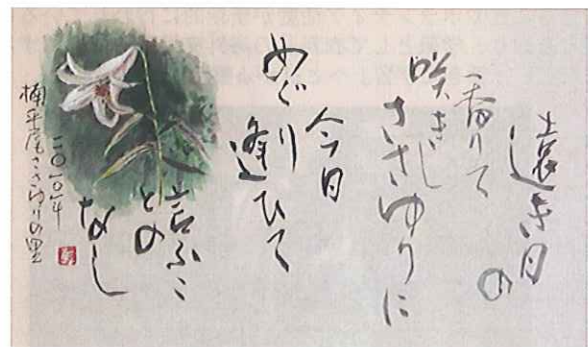 遠き日の
香りて
咲きし
ささゆりに
今日
めぐり逢ひて
言ふこ
との
なし
二〇一〇年
楠平尾ささゆりの里